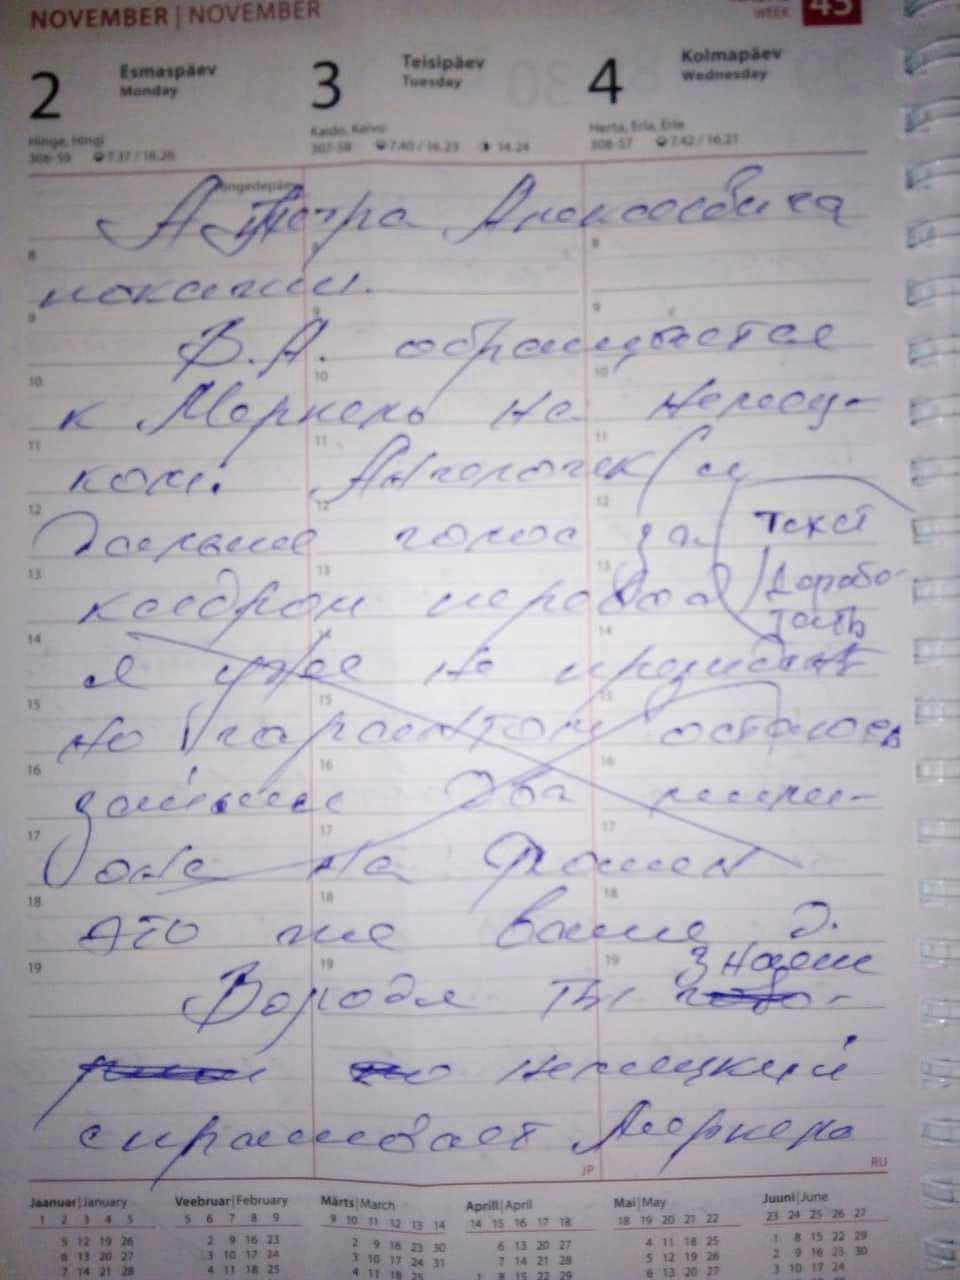 NOVEMBER | NOVEMBER
WEEK 45
2 Esmaspäev Monday
3 Teisipäev Tuesday
4 Kolmapäev Wednesday
Hinge, Hingi
306-59 7.37 / 16.26
Kaido, Kaivo
307-58 7.40 / 16.23 14.24
Herta, Erla, Erle
308-57 7.42 / 16.21
А Петра Алексеевича
показали.
В.А. обращается
к Меркель на немец-
ком.
Дальше голос за
кадром перевод
текст
дорабо-
тать
я уже не президент
но гарантом остаюсь
два милли-
она на
это же ваше
Володя ты знаешь
немецкий
спрашивает Меркель
JP
RU
Jaanuar | January
Veebruar | February
Märts | March
Aprill | April
Mai | May
Juuni | June
1 2 3 4 5
5 6 7 8 9
9 10 11 12 13 14
14 15 16 17 18
18 19 20 21 22
23 24 25 26 27
5 12 19 26
2 9 16 23
2 9 16 23 30
6 13 20 27
4 11 18 25
1 8 15 22 29
6 13 20 27
3 10 17 24
3 10 17 24 31
7 14 21 28
5 12 19 26
2 9 16 23 30
7 14 21 28
4 11 18 25
4 11 18 25
1 8 15 22 29
6 13 20 27
3 10 17 24